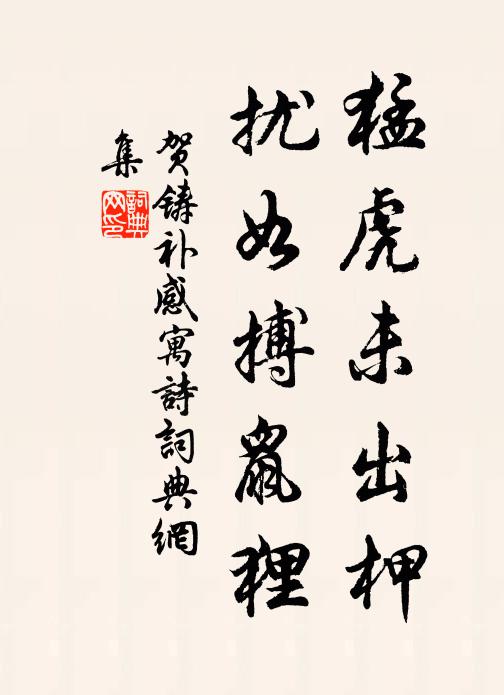 猛虎未出柙
扰如搏鼠狸
贺铸补感寓詩詞典網
集
詞典网印